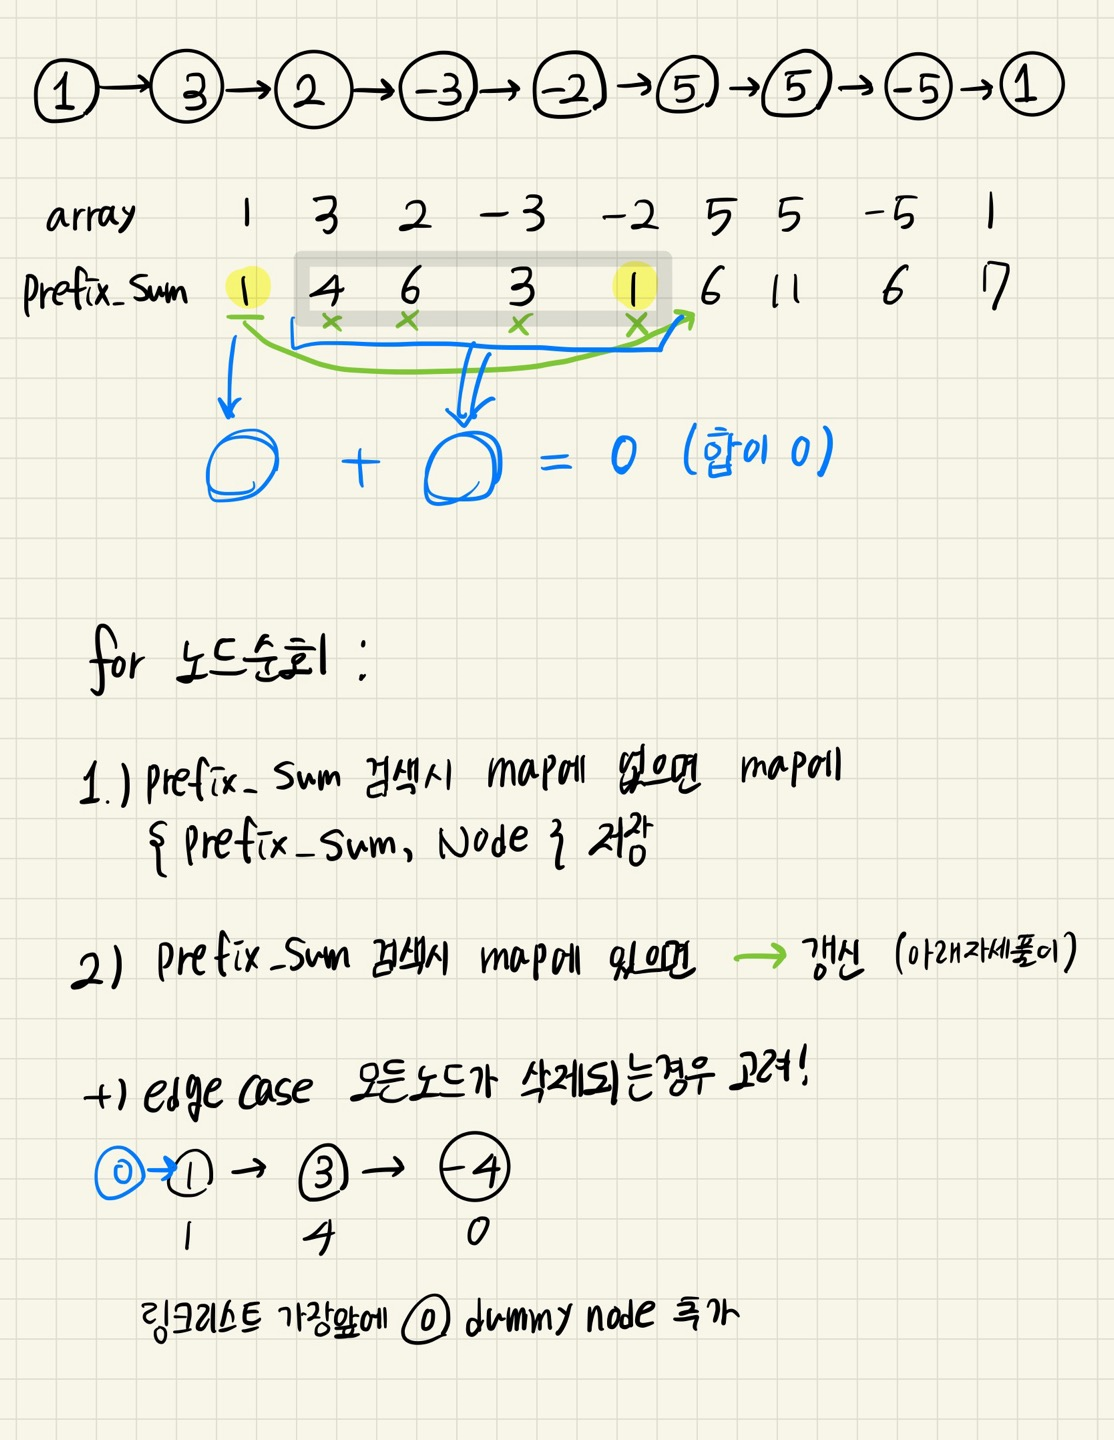 1 → 3 → 2 → -3 → -2 → 5 → 5 → -5 → 1
array 1 3 2 -3 -2 5 5 -5 1
Prefix_Sum 1 4 6 3 1 6 11 6 7
x x x x
O + O = 0 (합이 0)
for 노드순회 :
1.) Prefix_Sum 검색시 map에 없으면 map에
{ Prefix_Sum, Node } 저장
2) Prefix_Sum 검색시 map에 있으면 → 갱신 (아래자세풀이)
+) edge case 모든노드가 삭제되는경우 고려!
0 → 1 → 3 → -4
1 4 0
링크리스트 가장앞에 0 dummy node 추가